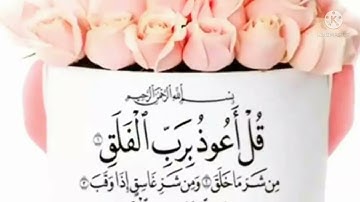 بِسْمِ اللهِ الرَّحْمٰنِ الرَّحِيمِ
قُلْ أَعُوذُ بِرَبِّ الْفَلَقِ ١
مِن شَرِّ مَا خَلَقَ ٢ وَمِن شَرِّ غَاسِقٍ إِذَا وَقَبَ ٣